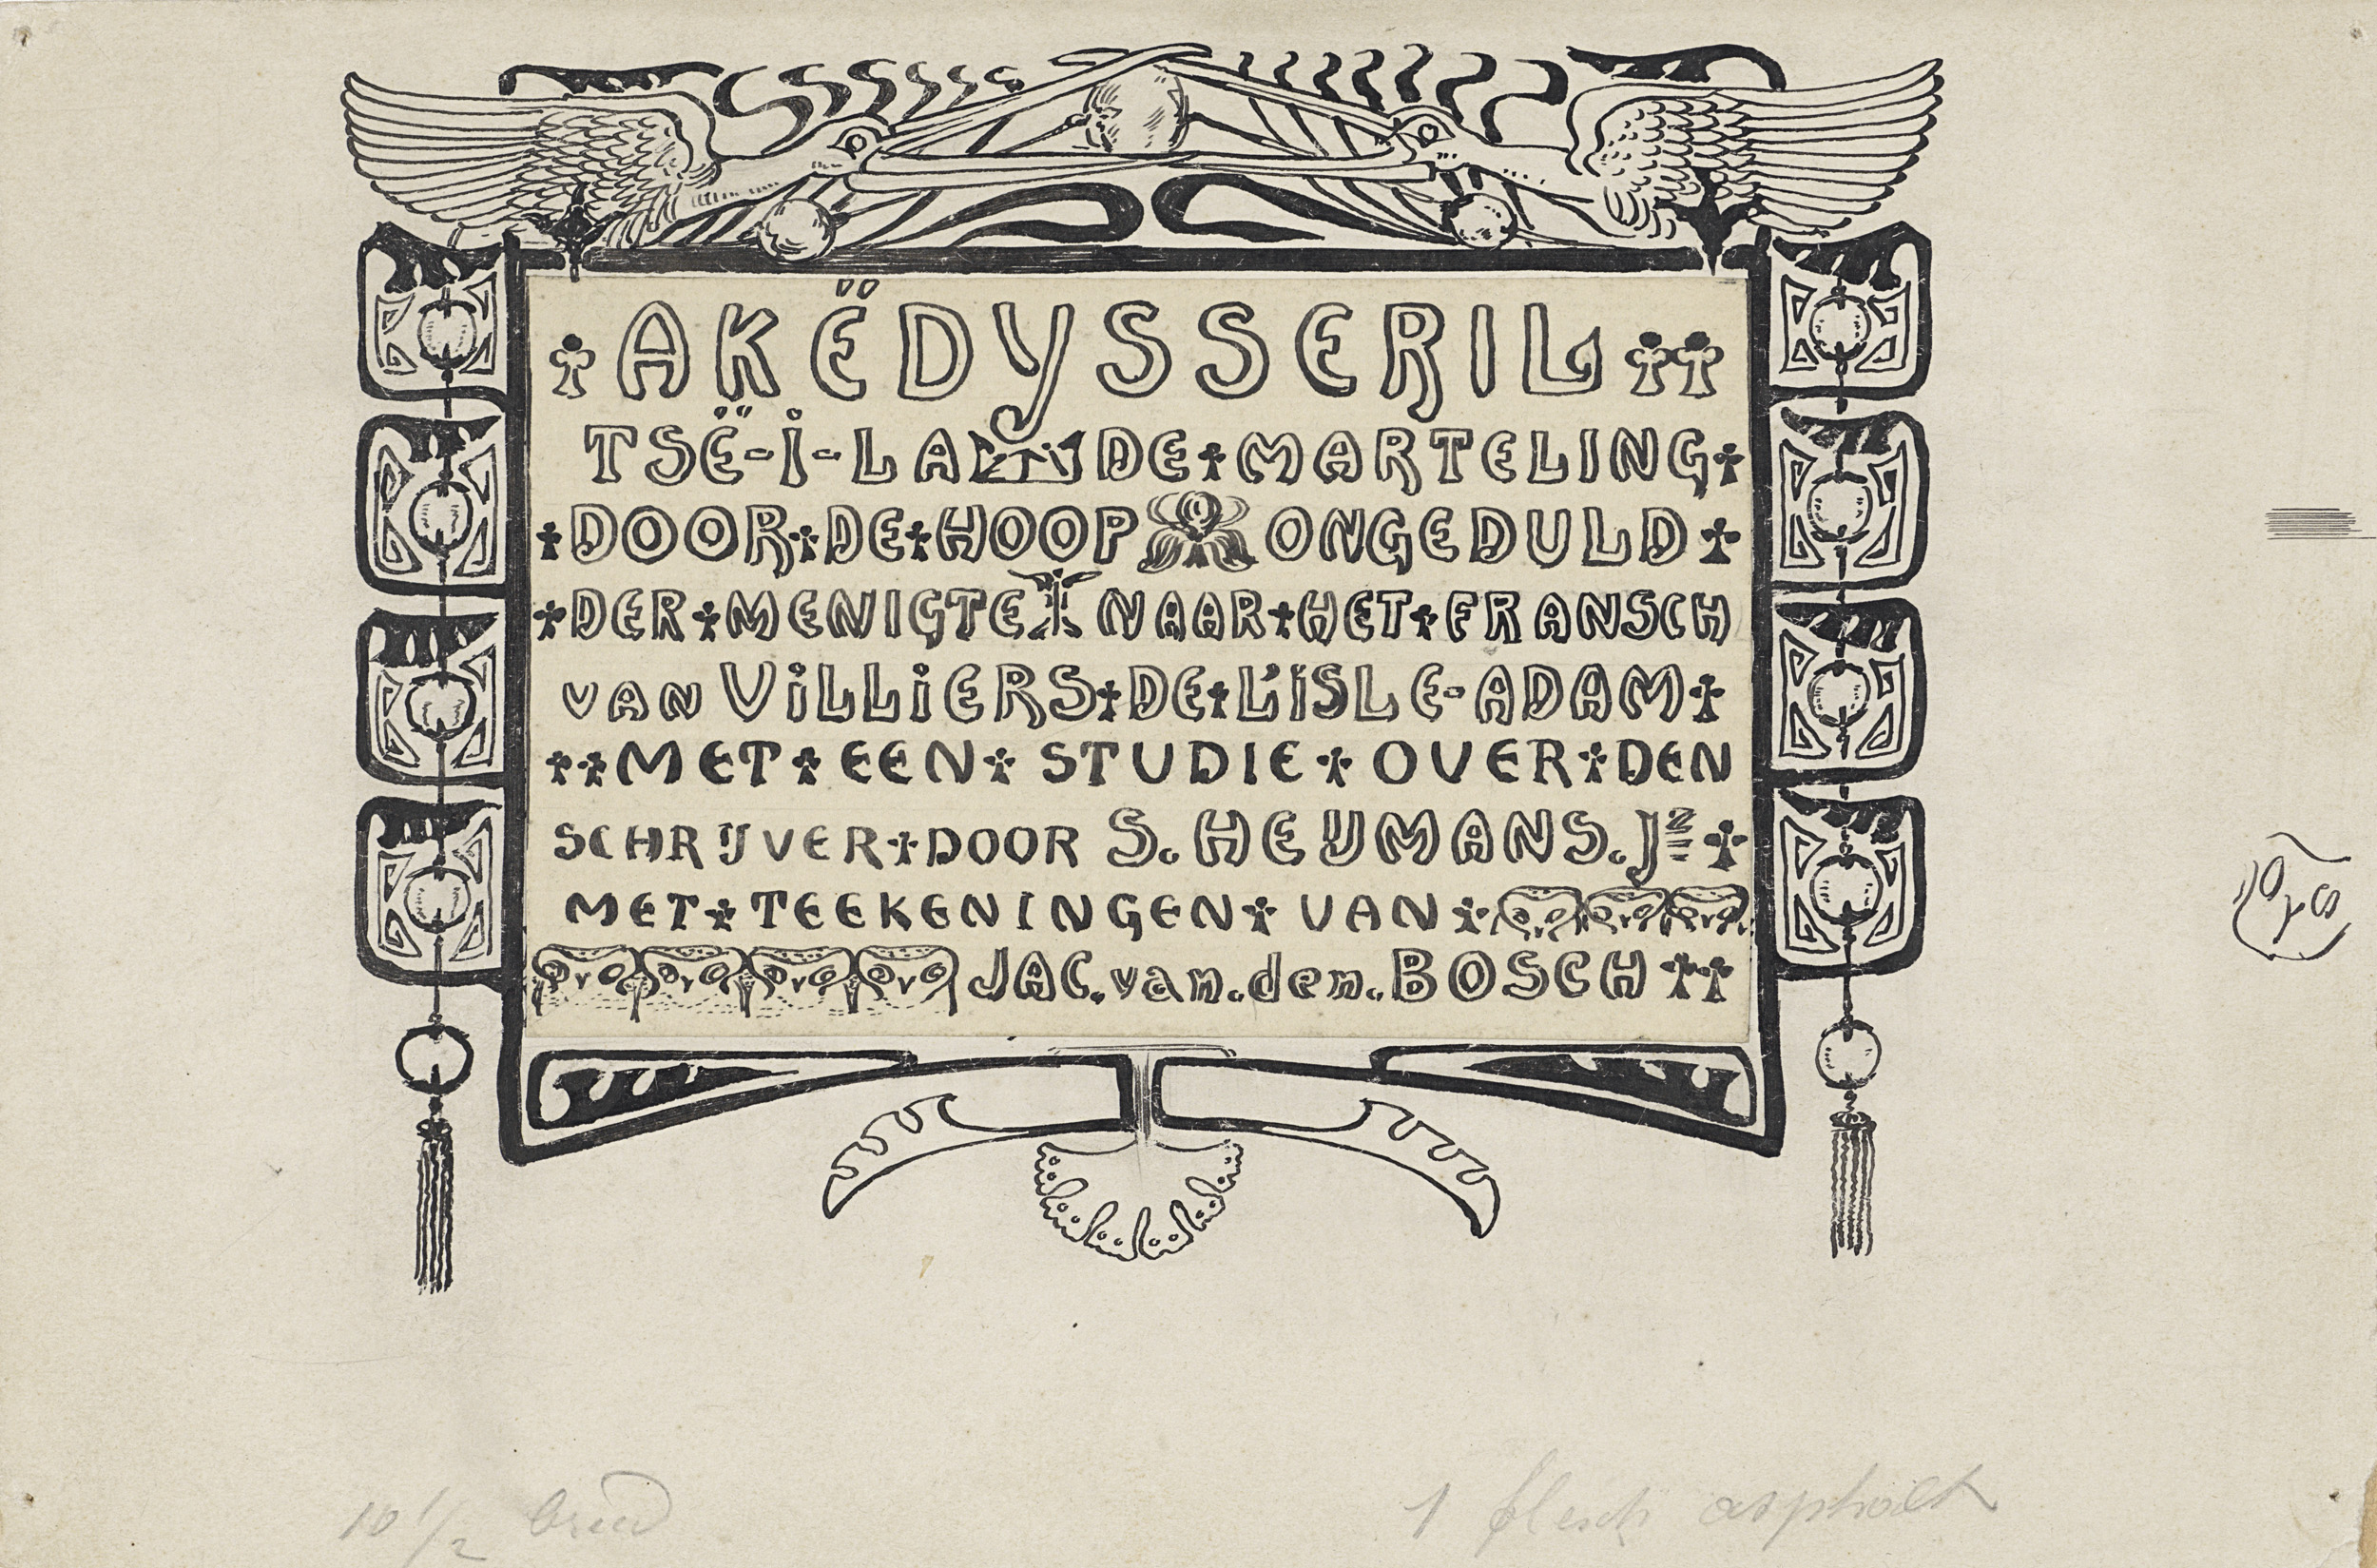 AKËDYSSERIL
TSË-I-LA DE MARTELING
DOOR DE HOOP ONGEDULD
DER MENIGTE NAAR HET FRANSCH
VAN VILLIERS DE L'ISLE-ADAM
MET EEN STUDIE OVER DEN
SCHRIJVER DOOR S. HEIJMANS. Jr
MET TEEKENINGEN VAN
JAC. van. den. BOSCH
10 1/2 breed
1 flesch asphalt